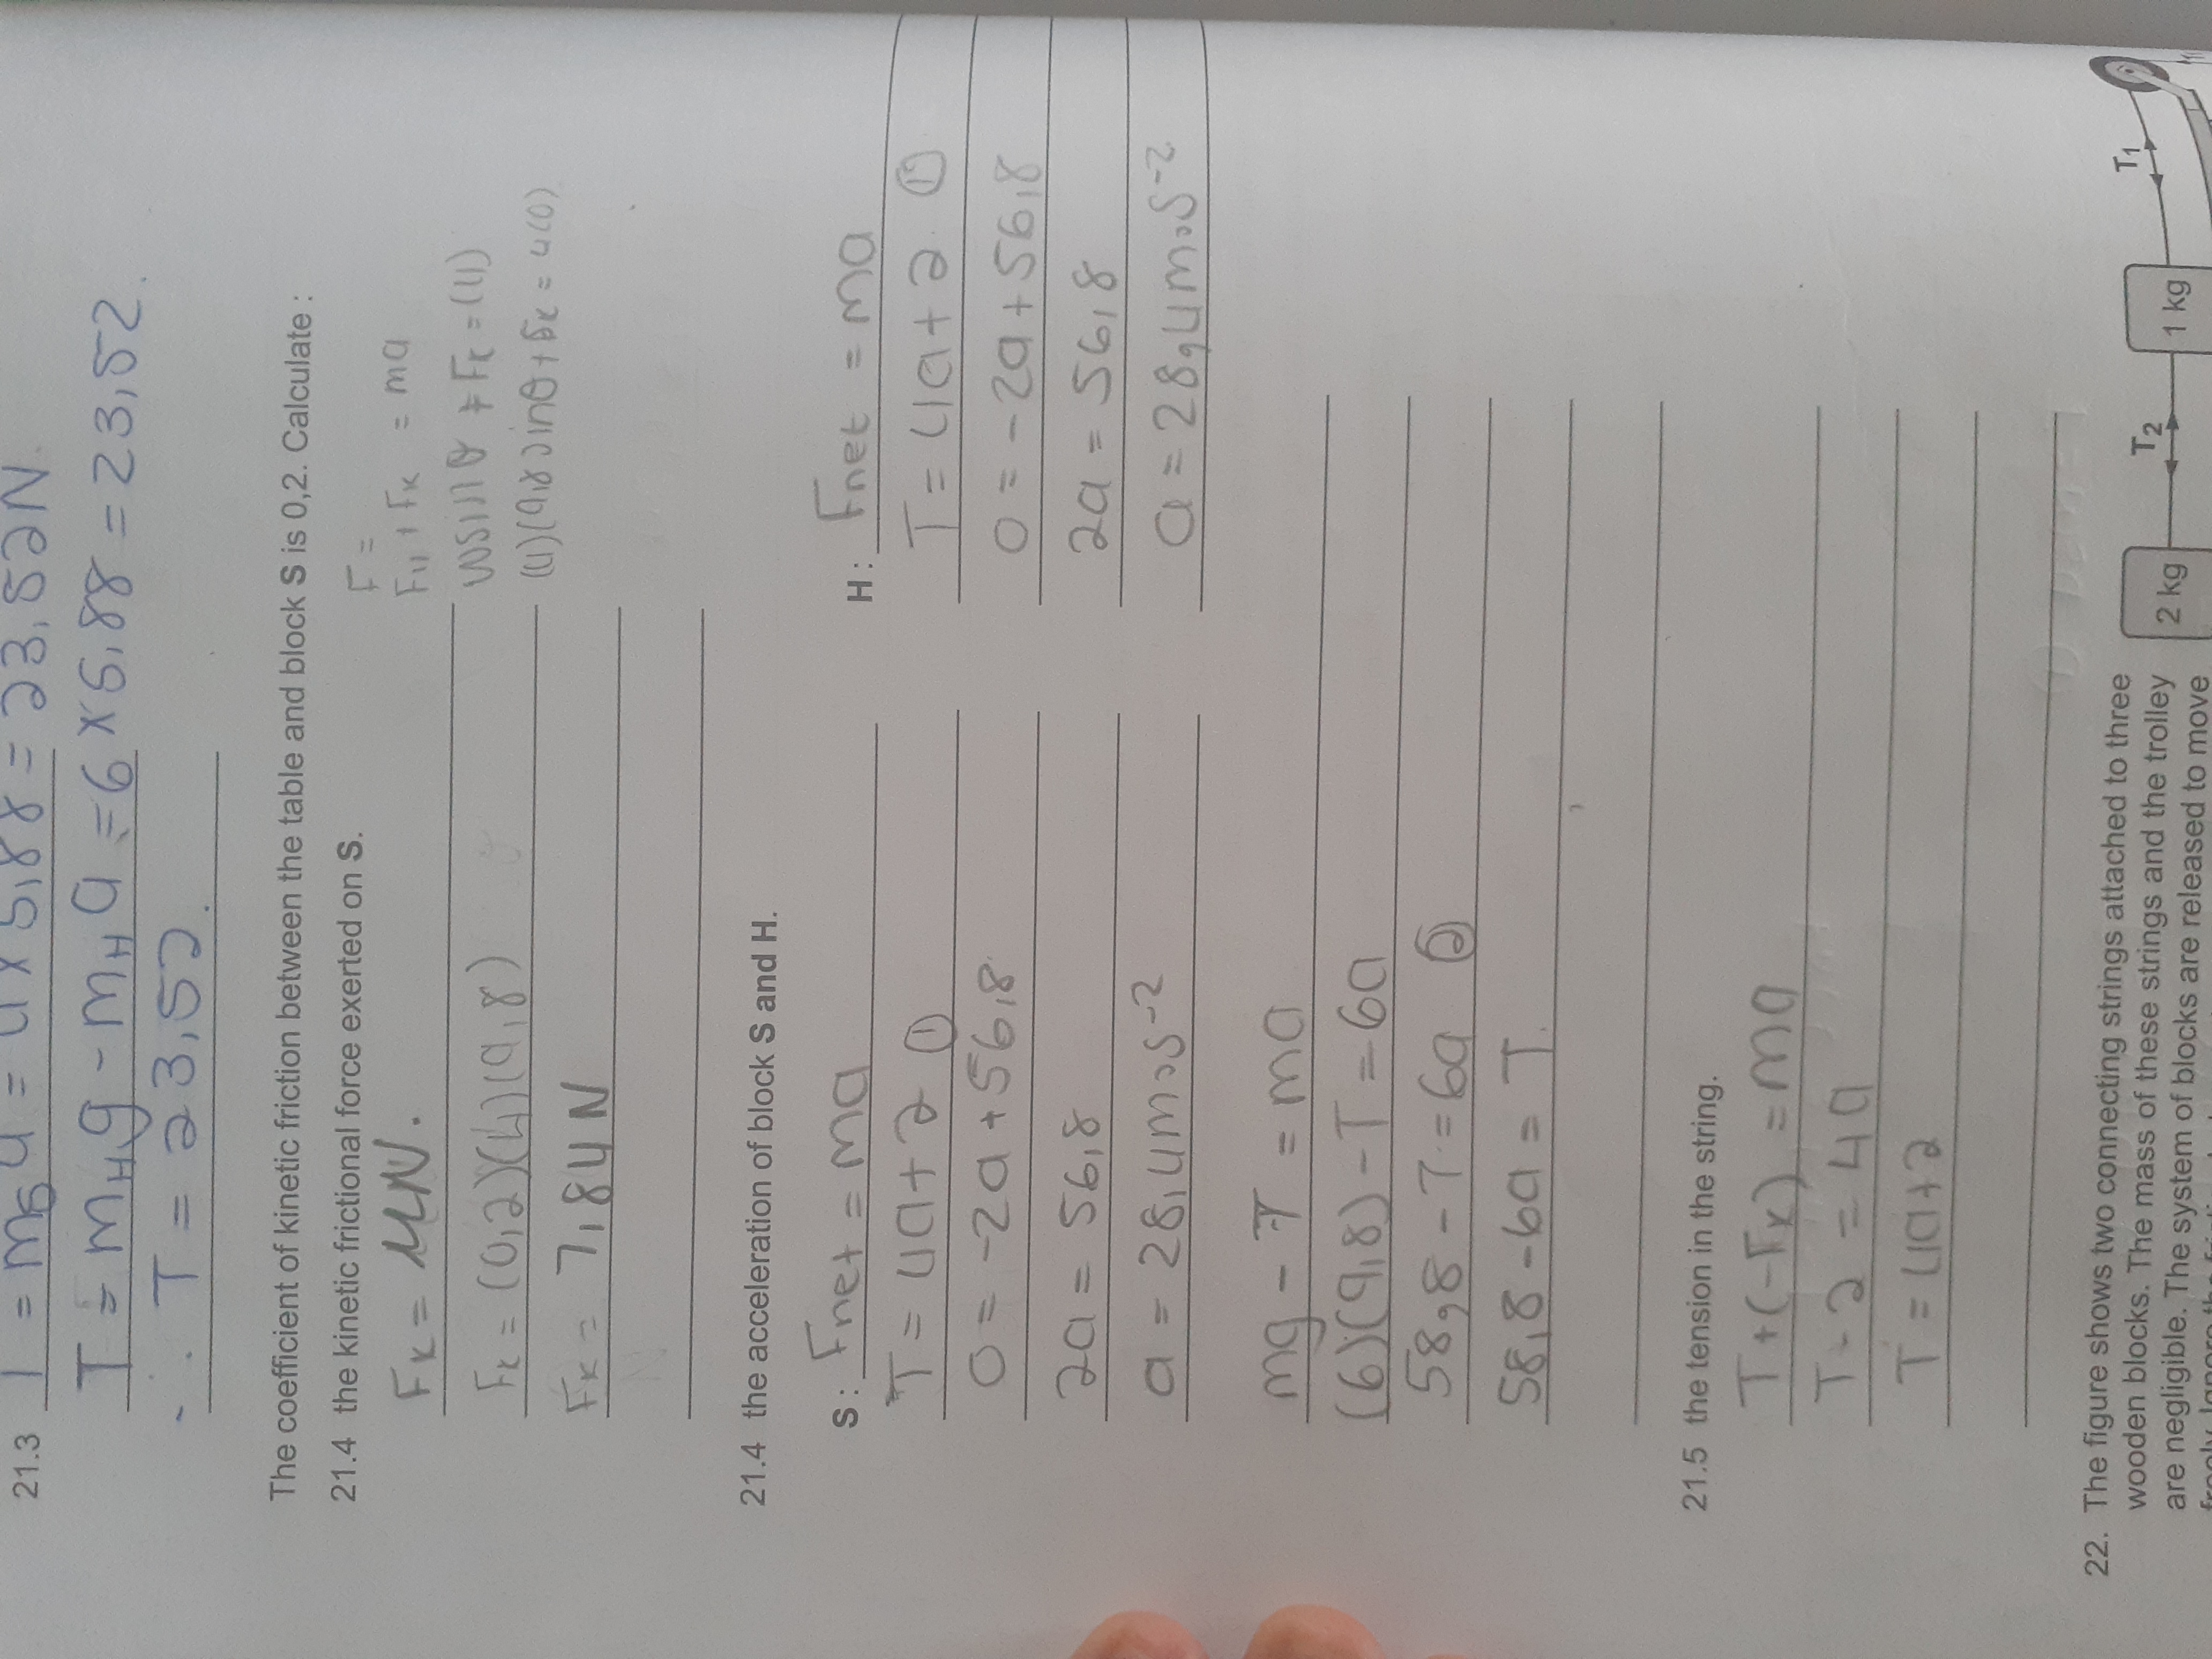 21.3 T = mₛa = 4 × 5,88 = 23,52N.
T = m_H g - m_H a = 6 × 5,88 = 23,52.
∴ T = 23,52.
The coefficient of kinetic friction between the table and block S is 0,2. Calculate :
21.4 the kinetic frictional force exerted on S.
F =
F_K = μN.
F_∥ + F_K = ma
F_K = (0,2)(4)(9,8)
wsinθ + F_K = (4)
(4)(9,8)sinθ + F_K = 4(0)
F_K = 7,84 N
21.4 the acceleration of block S and H.
S : Fnet = ma
T = 4a + 2 ①
0 = -2a + 56,8
2a = 56,8
a = 28,4m.s⁻²
H : Fnet = ma
T = 4a + 2 ①
0 = -2a + 56,8
2a = 56,8
a = 28,4m.s⁻²
mg - T = ma
(6)(9,8) - T = 6a
58,8 - T = 6a ②
58,8 - 6a = T.
21.5 the tension in the string.
T + (-F_K) = ma
T - 2 = 4a
T = 4a + 2
22. The figure shows two connecting strings attached to three
wooden blocks. The mass of these strings and the trolley
are negligible. The system of blocks are released to move
2 kg T₂ 1 kg T₁